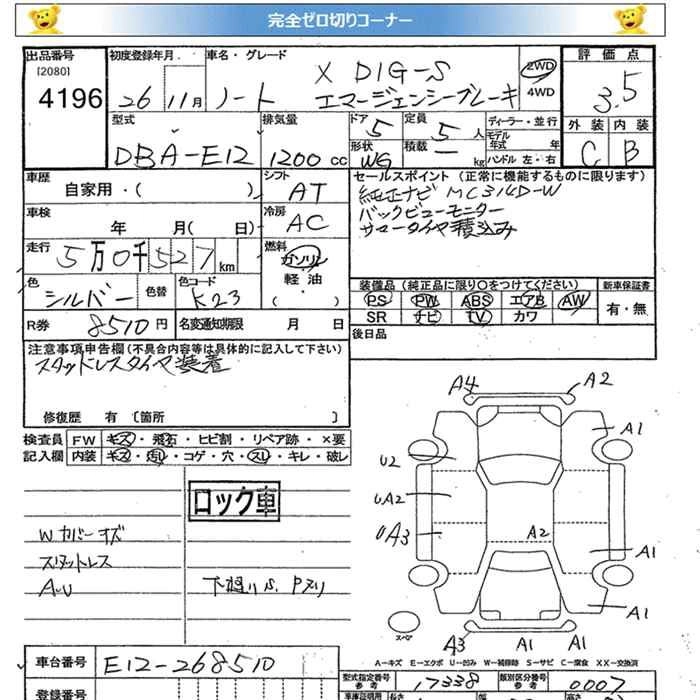 完全ゼロ切りコーナー
出品番号 初度登録年月 車名・グレード 評価点
[2080] X DIG-S 2WD
4196 26 11月 ノート エマージェンシーブレーキ 4WD 3.5
型式 排気量 ドア 定員 ディーラー・並行 外装 内装
DBA-E12 1200cc 5 5人 モデル年式 年
形状 WG 積載 ー kg ハンドル 左・右 C B
車歴 シフト セールスポイント (正常に機能するものに限ります)
自家用・( ) AT 純正ナビ MC314D-W
車検 冷房 バックビューモニター
年 月( ) AC サマータイヤ積込み
走行 燃料
5万0千527km ガソリン
軽油
( ・ )
色 色替 色コード 装備品 (純正品に限り○をつけてください) 新車保証書
シルバー K23 PS PW ABS エアB AW 有・無
SR ナビ TV カワ
R券 8510円 名変通知期限 月 日 後日品
注意事項申告欄 (不具合内容等は具体的に記入して下さい)
スタッドレスタイヤ装着
修復歴 有 〔箇所 〕
検査員 FW キズ・飛石・ヒビ割・リペア跡・×要
記入欄 内装 キズ・汚れ・コゲ・穴・スレ・キレ・破レ
ロック車
Wカバーキズ
スタットレス
A・U
下廻りS. Pヌリ
A4 A2
A1
U2
UA2
UA3 A2
A1
A1
スペア
A3 A1 A1
A-キズ E-エクボ U-凹み W-補修跡 S-サビ C-腐食 XX-交換済
車台番号 E12-268510
型式指定番号 17338 類別区分番号 0007
登録番号